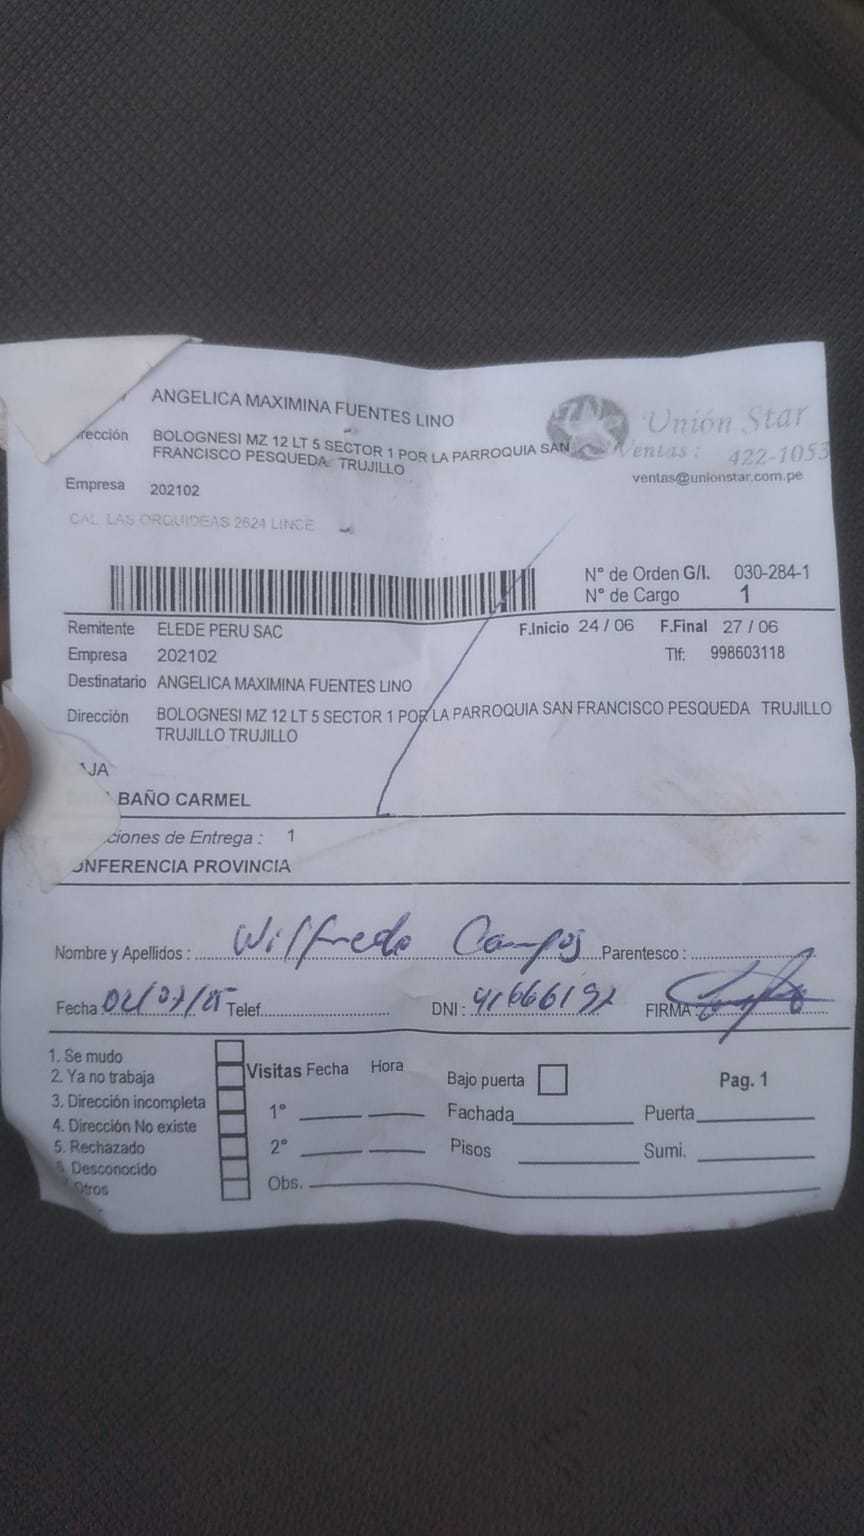 ANGELICA MAXIMINA FUENTES LINO
Unión Star
rección BOLOGNESI MZ 12 LT 5 SECTOR 1 POR LA PARROQUIA SAN
FRANCISCO PESQUEDA TRUJILLO
Ventas : 422-1053
ventas@unionstar.com.pe
Empresa 202102
CAL. LAS ORQUIDEAS 2624 LINCE
N° de Orden G/I. 030-284-1
N° de Cargo 1
Remitente ELEDE PERU SAC F.Inicio 24 / 06 F.Final 27 / 06
Empresa 202102 Tlf: 998603118
Destinatario ANGELICA MAXIMINA FUENTES LINO
Dirección BOLOGNESI MZ 12 LT 5 SECTOR 1 POR LA PARROQUIA SAN FRANCISCO PESQUEDA TRUJILLO
TRUJILLO TRUJILLO
AJA
BAÑO CARMEL
ciones de Entrega : 1
ONFERENCIA PROVINCIA
Nombre y Apellidos : Wilfredo Campos Parentesco :
Fecha 02/07/25 Telef. DNI : 41666192 FIRMA :
1. Se mudo
2. Ya no trabaja
3. Dirección incompleta
4. Dirección No existe
5. Rechazado
6. Desconocido
Otros
Visitas Fecha Hora
1°
2°
Obs.
Bajo puerta
Fachada
Pisos
Pag. 1
Puerta
Sumi.